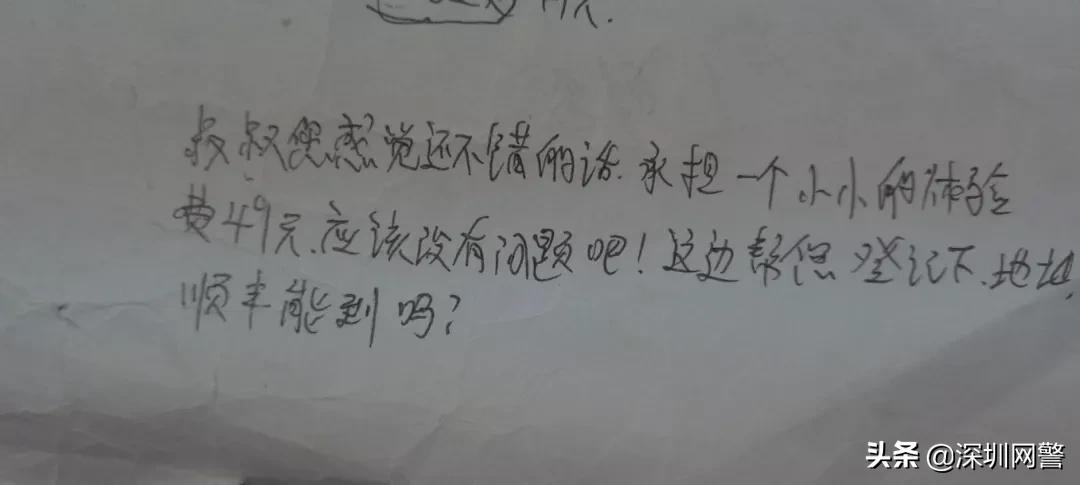 叔叔您感觉还不错的话.承担一个小小的体验
费49元.应该没有问题吧!这边帮您登记下.地址,
顺丰能到吗?
头条 @深圳网警